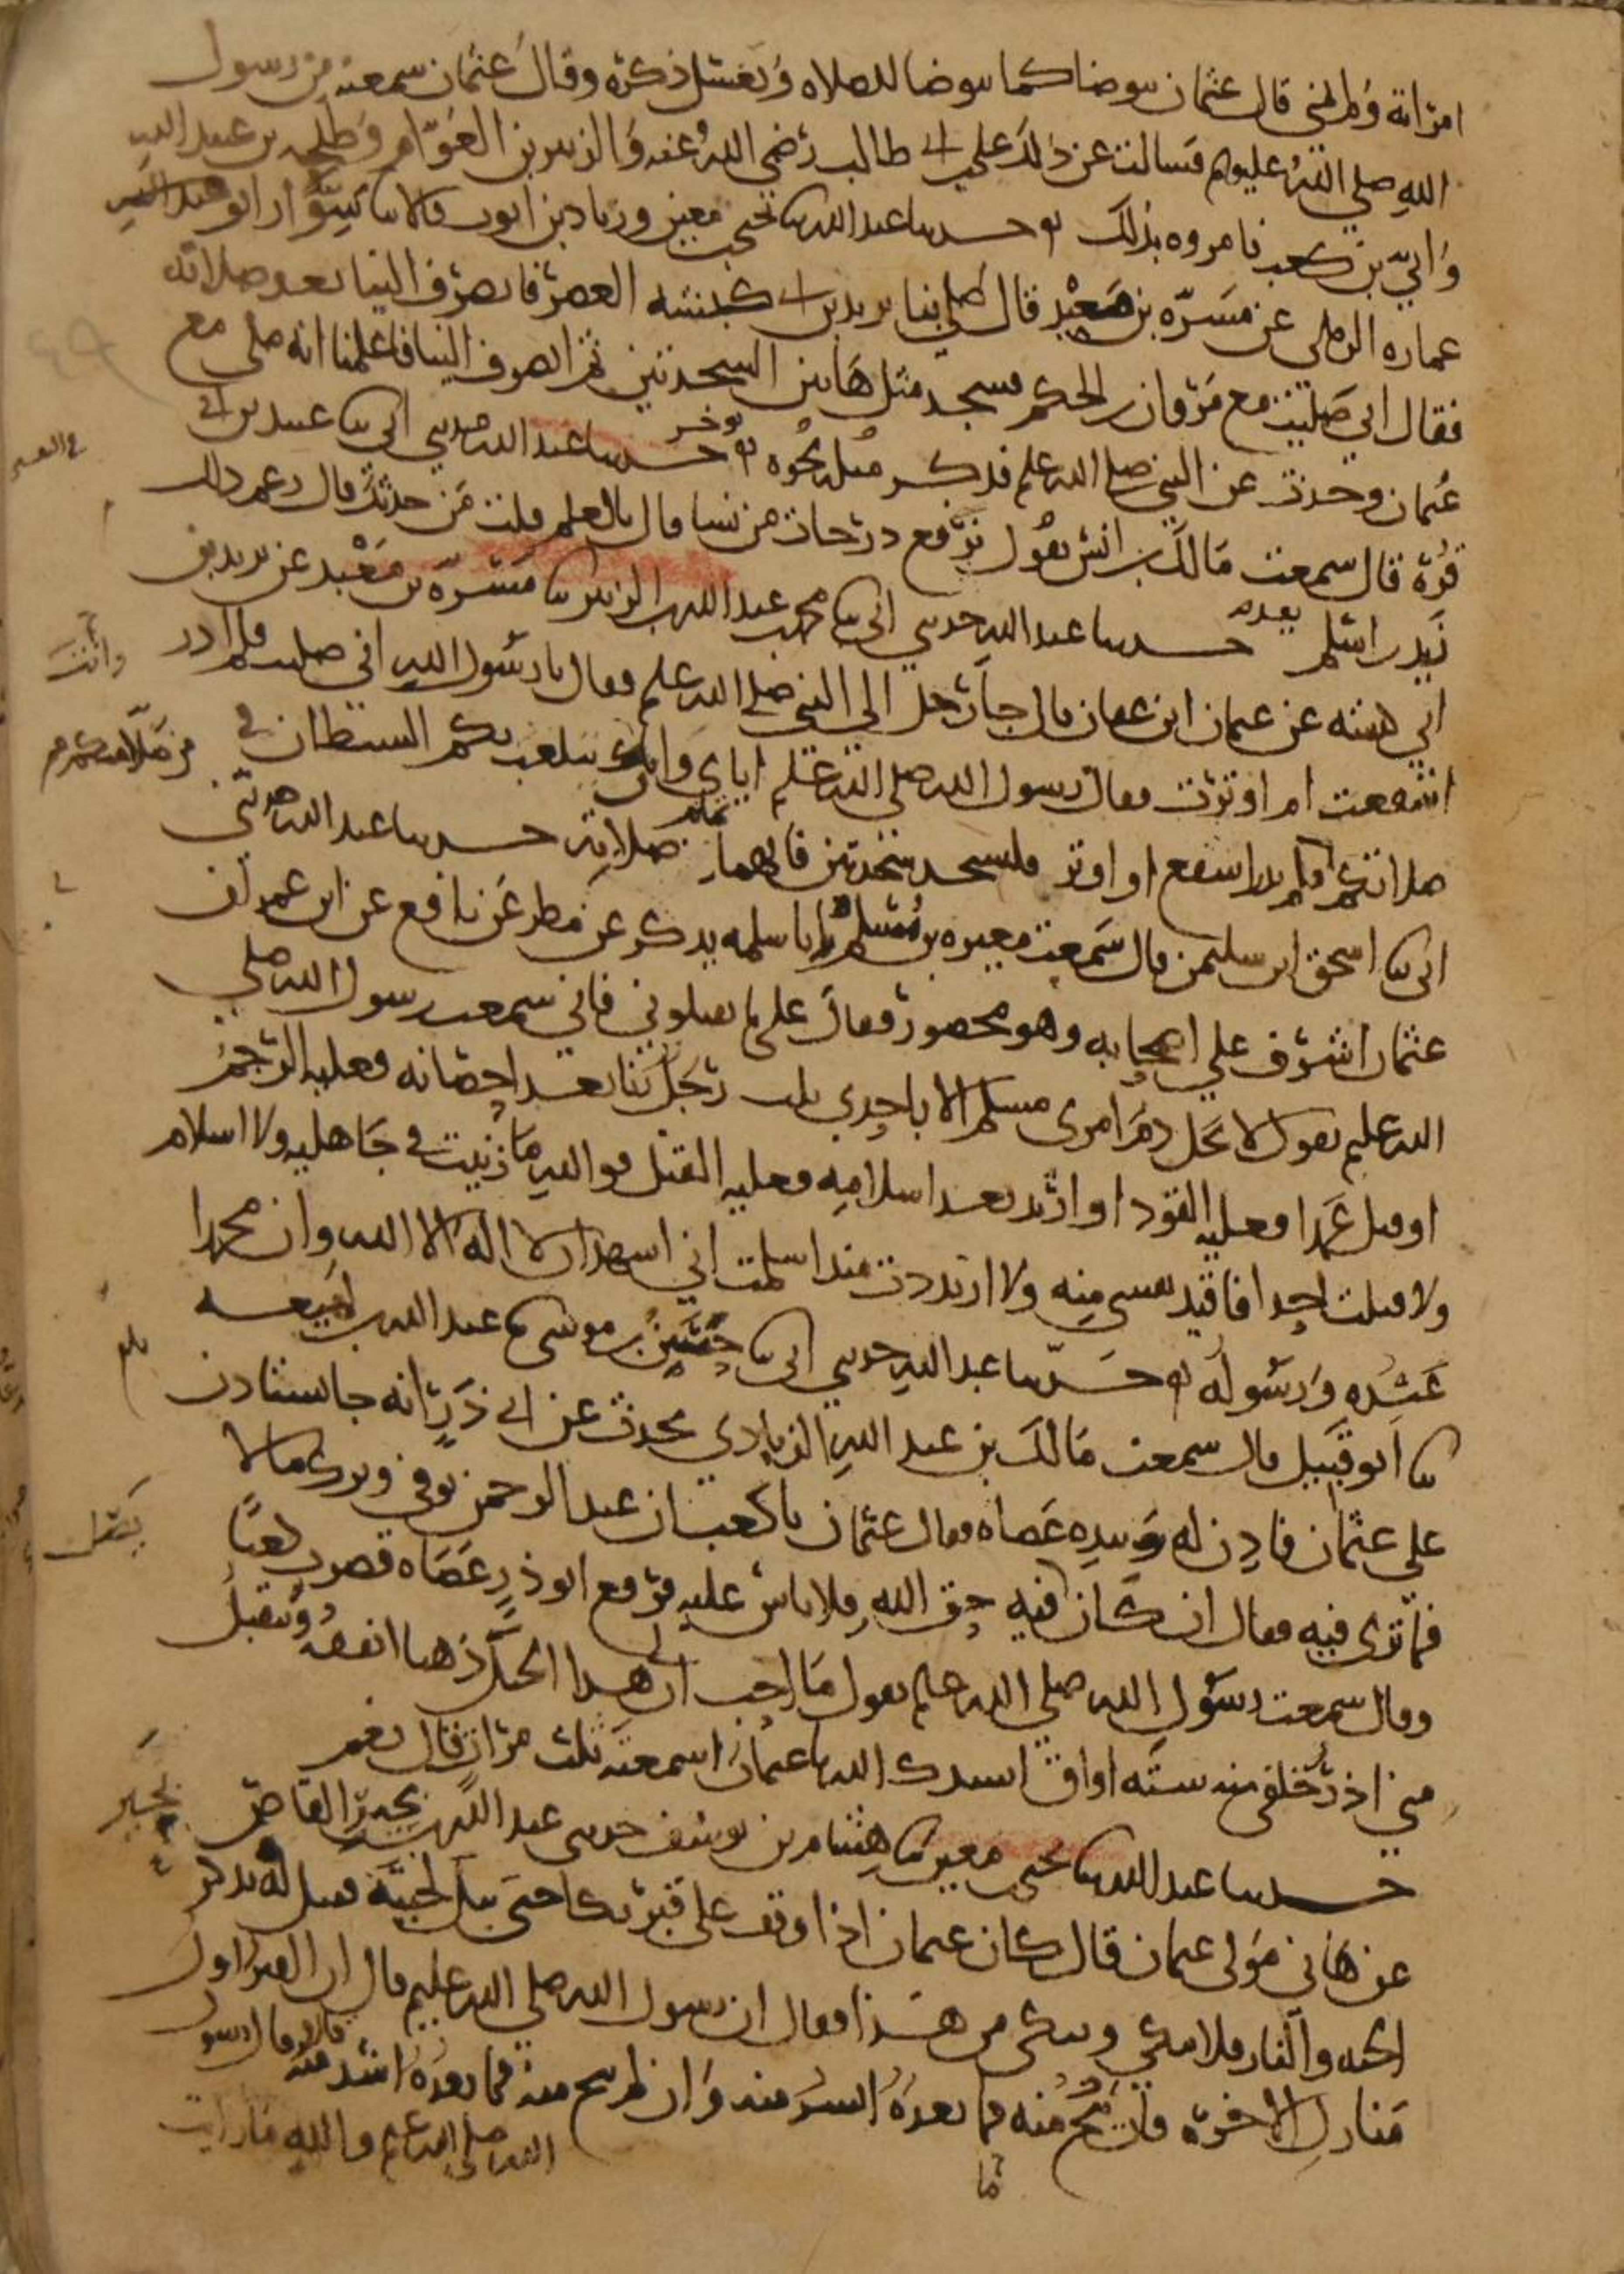 امراته ولم يمني قال عثمان يتوضا كما يتوضا للصلاه ويغسل ذكره وقال عثمان سمعته من رسول
الله صلي الله عليه وسلم فسالت عن ذلك علي بن ابي طالب رضي الله عنه والزبير بن العوام وطلحه بن عبيد الله
وابي بن كعب فامروه بذلك حدثنا عبد الله ثنا يحيى بن معين وزياد بن ايوب قالا ثنا سوار ابو عماره الرملي
عماره الرملي عن مسره بن معبد قال صلي بنا يزيد بن ابي كبشه العصر فانصرف الينا بعد صلاته
فقال اني صليت مع مروان بن الحكم فسجد مثل هاتين السجدتين ثم انصرف الينا فاعلمنا انه صلى مع
عثمان وحدث عن النبي صلى الله عليه وسلم فذكر مثله نحوه حدثنا عبد الله حدثني ابي ثنا عبيد بن ابي
قره قال سمعت مالك بن انس يقول نرفع درجات من نشا قال بالعلم قلت من حدثك قال زعم ذاك
زيد بن اسلم حدثنا عبد الله حدثني ابي ثنا محمد بن عبد الله بن الزبير ثنا مسره بن معبد عن يزيد بن
ابي كبشه عن عثمان ابن عفان قال جا رجل الى النبي صلى الله عليه وسلم فقال يا رسول الله اني صليت فلم ادر
اشفعت ام اوترت فقال رسول الله صلى الله عليه وسلم اياي وان يتلعب بكم الشيطان في
صلاتكم فلم يدر اشفع او اوتر فليسجد سجدتين فانهما تمام صلاته حدثنا عبد الله حدثني
ابي ثنا اسحق ابن سليمن قال سمعت مغيره بن مسلم ابا سلمه يذكر عن مطر عن نافع عن ابن عمر ان
عثمان اشرف علي اصحابه وهو محصور فقال علي ما تقتلوني فاني سمعت رسول الله صلي
الله عليه وسلم يقول لا يحل دم امرئ مسلم الا باحدى ثلث رجل زنا بعد احصانه فعليه الرجم
او قتل عمدا فعليه القود او ارتد بعد اسلامه فعليه القتل فو الله ما زنيت في جاهليه ولا اسلام
ولا قتلت احدا فاقيد نفسي منه ولا ارتددت منذ اسلمت اني اشهد ان لا اله الا الله وان محمدا
عبده ورسوله حدثنا عبد الله حدثني ابي ثنا حسن بن موسى ثنا عبد الله بن لهيعه
ثنا ابو قبيل قال سمعت مالك بن عبد الله الزيادي يحدث عن ابي ذر انه جا يستاذن
علي عثمان فاذن له وبيده عصاه فقال عثمان يا كعب ان عبد الرحمن توفي وترك مالا
فما ترى فيه فقال ان كان فيه حق الله فلا باس عليه فرفع ابو ذر عصاه فضرب كعبا
وقال سمعت رسول الله صلي الله عليه وسلم يقول ما احب ان لي هذا الجبل ذهبا انفقه ويتقبل
مني اذر خلفي منه سته اواق انشدك الله يا عثمان اسمعته ثلث مرات قال نعم
حدثنا عبد الله ثنا يحيى بن معين ثنا هشام بن يوسف حدثني عبد الله بن بحير القاص
عن هاني مولى عثمان قال كان عثمان اذا وقف على قبر بكا حتى يبل لحيته فقيل له تذكر
الجنه والنار فلا تبكي وتبكي من هذا فقال ان رسول الله صلي الله عليه وسلم قال ان القبر اول
منازل الاخره فان نج منه فما بعده ايسر منه وان لم ينج منه فما بعده اشد منه قال وقال رسول
الله صلى الله عليه وسلم والله ما رايت